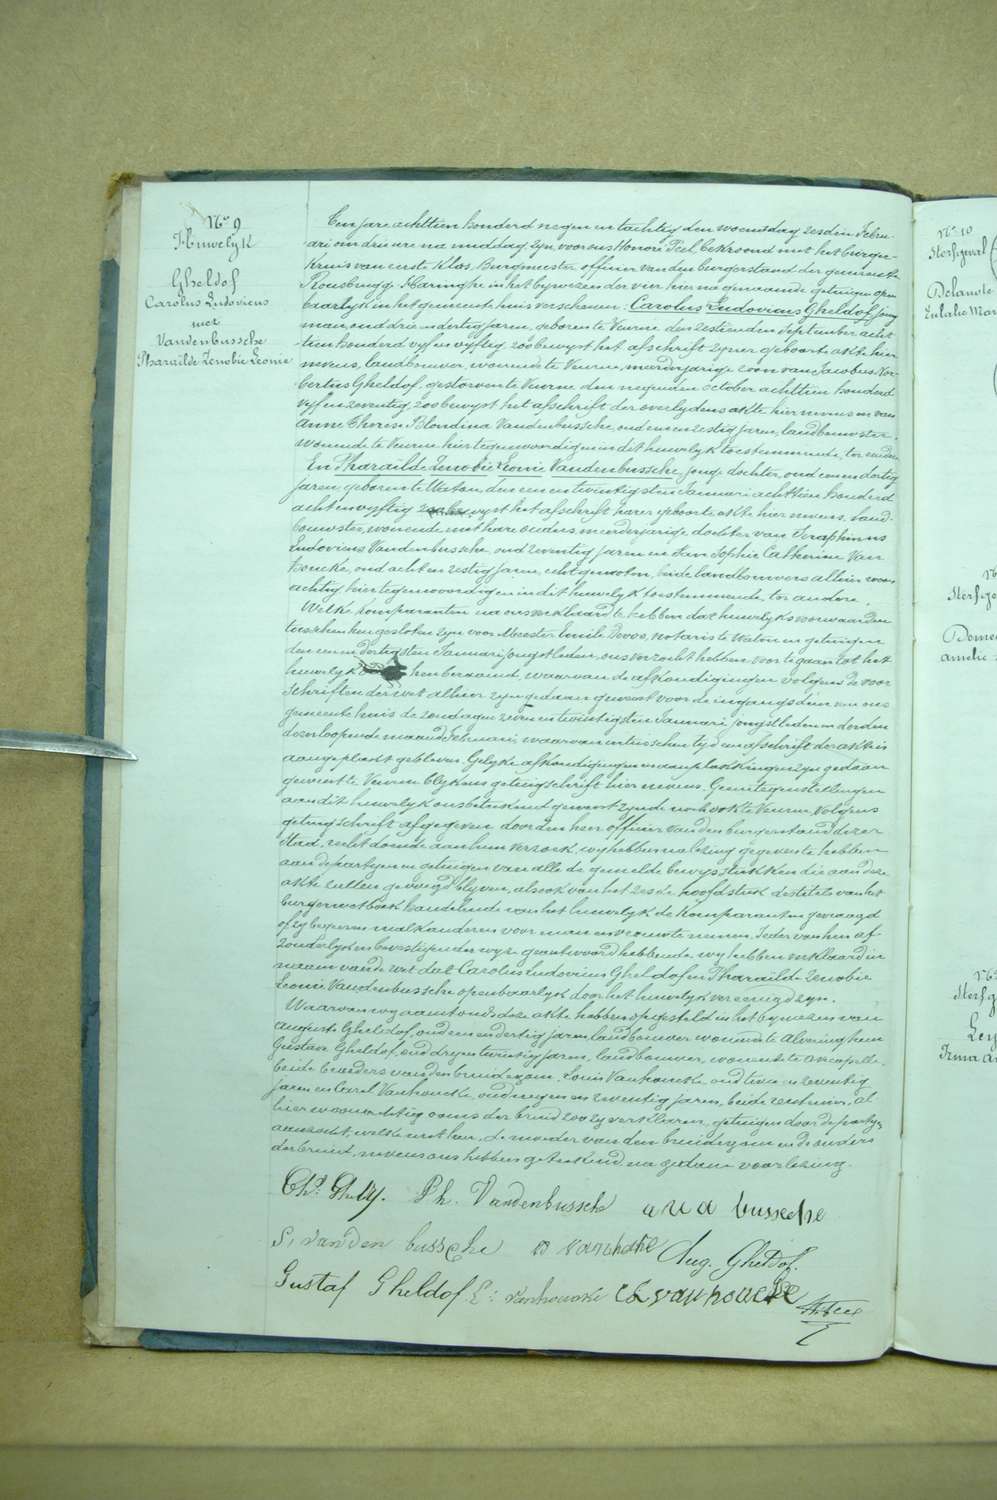 N° 9
Huwelyk
Gheldof
Carolus Ludovicus
met
Vandenbussche
Pharaïlde Zenobie Leonie
Een jare achttien honderd negen en tachtig den woensdag zesden Febru-
ari om drie ure na middag zyn, voor ons Honoré Peel, bekroond met het burger-
kruis van eerste klas, Burgmeester, officier van den burgerstand der gemeente
Rousbrugge Haringhe in het bywezen der vier hierna genaamde getuigen open-
baarlyk in het gemeente huis verschenen: Carolus Ludovicus Gheldof, jong-
man, oud drie en dertig jaren, geboren te Veurne den zestienden September acht-
tien honderd vyf en vyftig, zoo bewyst het afschrift zyner geboorte akte hier
nevens, landbouwer, wonende te Veurne, meerderjarige zoon van Jacobus Nor-
bertus Gheldof, gestorven te Veurne den negenden october achttien honderd
vyf en zeventig, zoo bewyst het afschrift der overlydens akte hier nevens en van
Anne Therese Blondina Vandenbussche, oud een en zestig jaren, landbouwster,
wonende te Veurne hier tegenwoordig en in dit huwelyk toestemmende, ter eendre
En Pharaïlde Zenobie Leonie Vandenbussche, jonge dochter, oud een en dertig
jaren, geboren te Watou, den een en twintigsten Januari achttien honderd
acht en vyftig, wyst het afschrift harer geboorte akte hier nevens, land-
bouwster, wonende met hare ouders, meerderjarige dochter van Seraphinus
Ludovicus Vandenbussche, oud zeventig jaren en Sophie Catherine Van
Houcke, oud acht en zestig jaren, echtgenooten, beide landbouwers alhier woon-
achtig hier tegenwoordig en in dit huwelyk toestemmende, ter andere.
Welke komparanten na ons verklaard te hebben dat huwelyks voorwaarden
tusschen hen gesloten zyn voor Meester Emile Devos, notaris te Watou en getuigen
den een en dertigsten Januari jongstleden, ons verzocht hebben, voor te gaan tot het
huwelyk hen beraamd, waarvan de afkondigingen volgens de voor-
schriften der wet alhier zyn gedaan geweest voor de ingangsdeur van ons
gemeente huis de zondagen zeven en twintigsten Januari jongstleden en derden
dezer loopende maand Februari, waarvan intusschen tyd een afschrift der akte is
aangeplakt gebleven. Gelyke afkondigingen en aanplakkingen zyn gedaan
geweest te Veurne blykens getuigschrift hier nevens. Geene tegenstellingen
aan dit huwelyk ons beteekend geweest zynde noch ook te Veurne, volgens
getuigschrift afgegeven door den heer officier van den burgerstand dezer
stad, recht doende aan hun verzoek, wy hebben na lezing gegeven te hebben
aan de partyen en getuigen van alle de gemelde bewysstukken die aan deze
akte zullen gevoegd blyven, alsook van het zesde hoofdstuk des titels van het
burgerwetboek handelende van het huwelyk de komparanten gevraagd
of zy begeeren malkanderen voor man en vrouw te nemen. Ieder van hen af-
zonderlyk en bevestigender wyze geantwoord hebbende, wy hebben verklaard in
naam van de wet dat Carolus Ludovicus Gheldof en Pharaïlde Zenobie
Leonie Vandenbussche openbaarlyk door het huwelyk vereenigd zyn.
Waarvan wy aanstonds deze akte hebben opgesteld in het bywezen van
Auguste Gheldof, oud een en dertig jaren, landbouwer, wonende te Alveringhem
Gustave Gheldof, oud dry en twintig jaren, landbouwer, wonende te Avecapelle
beide broeders van den bruidegom, Louis Vanhoucke, oud twee en zeventig
jaren en Carel Vanhoucke, oud negen en zeventig jaren, beide rentenier, al-
hier woonachtig ooms der bruid zoo zy verklaren, getuigen door de partyen
aanzocht, welke met hen, de moeder van den bruidegom en de ouders
der bruid, nevens ons hebben geteekend na gedane voorlezing.
Chs. Gheldof. Ph. Vandenbussche a v d bussche
S, vanden bussche Aug. Gheldof.
Gustaf Gheldof L: vanhoucke ch vanhoucke
H. Peel
N° 10
Sterfgeval
Delanote
Eulalie Mar
Sterfge
Amelie
Sterfg
Irma